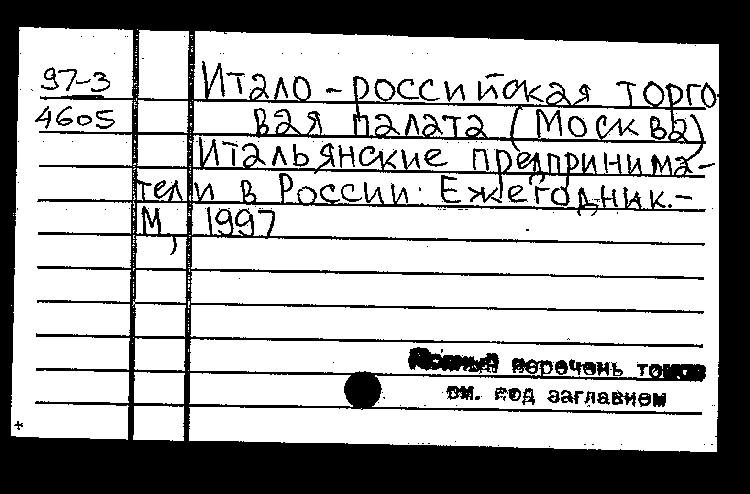 97-3
4605
Итало-российская торго
вая палата (Москва)
Итальянские предпринима-
тели в России: Ежегодник.-
М, 1997
Полный перечень томов
см. под заглавием